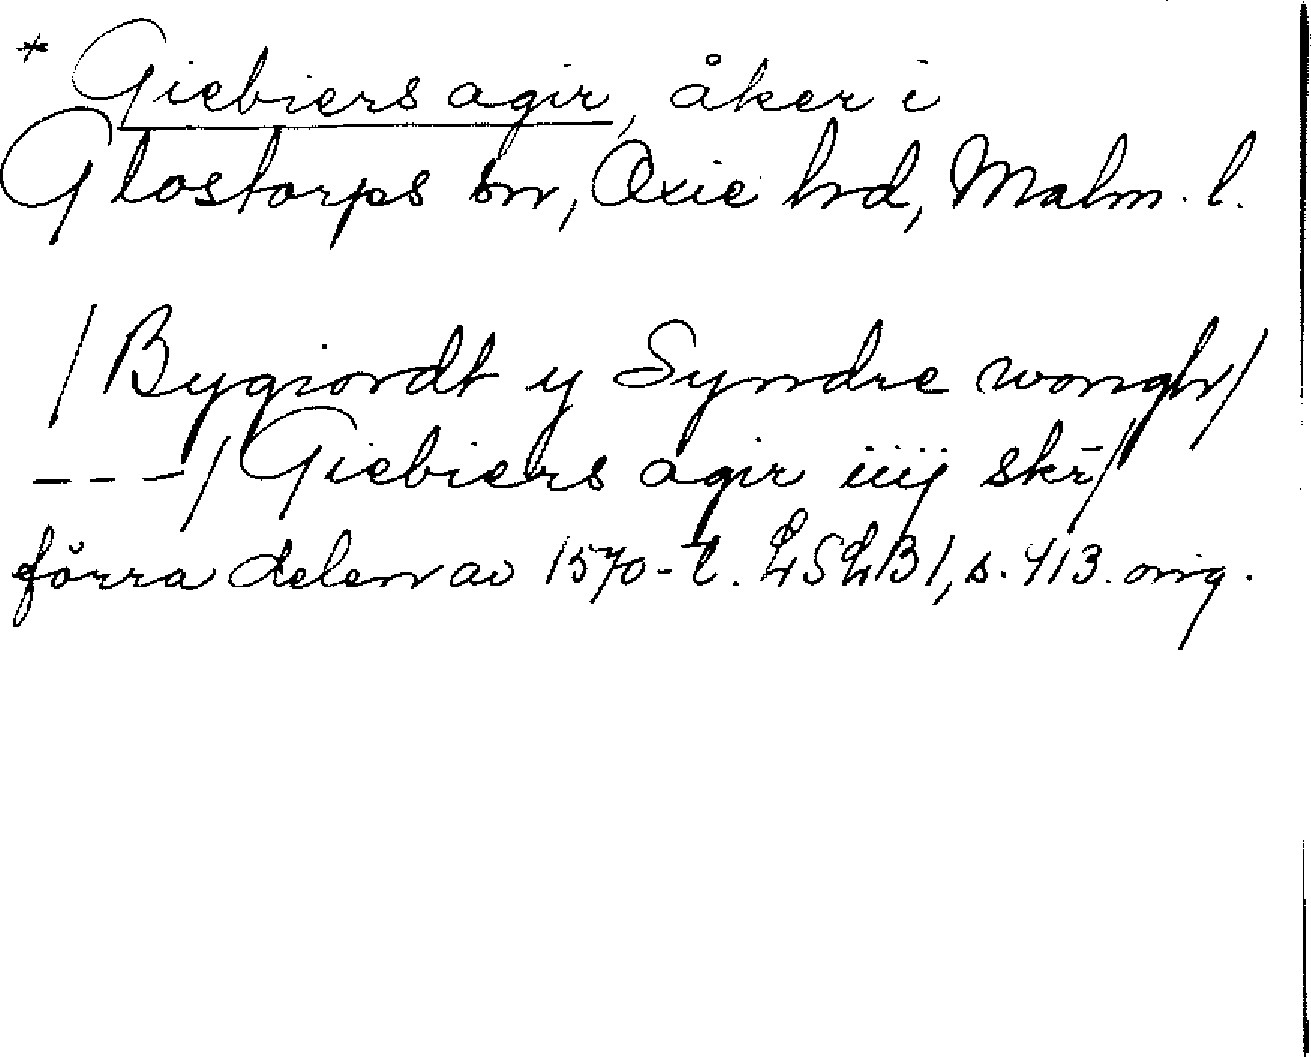 * Giebiers agir, åker i
Glostorps sn, Oxie hrd, Malm. l.
/Bygiordt y Syndre wongh/
---/Giebiers agir iiij skr/
förra delen av 1570-t. LSLB1, s. 413. orig.